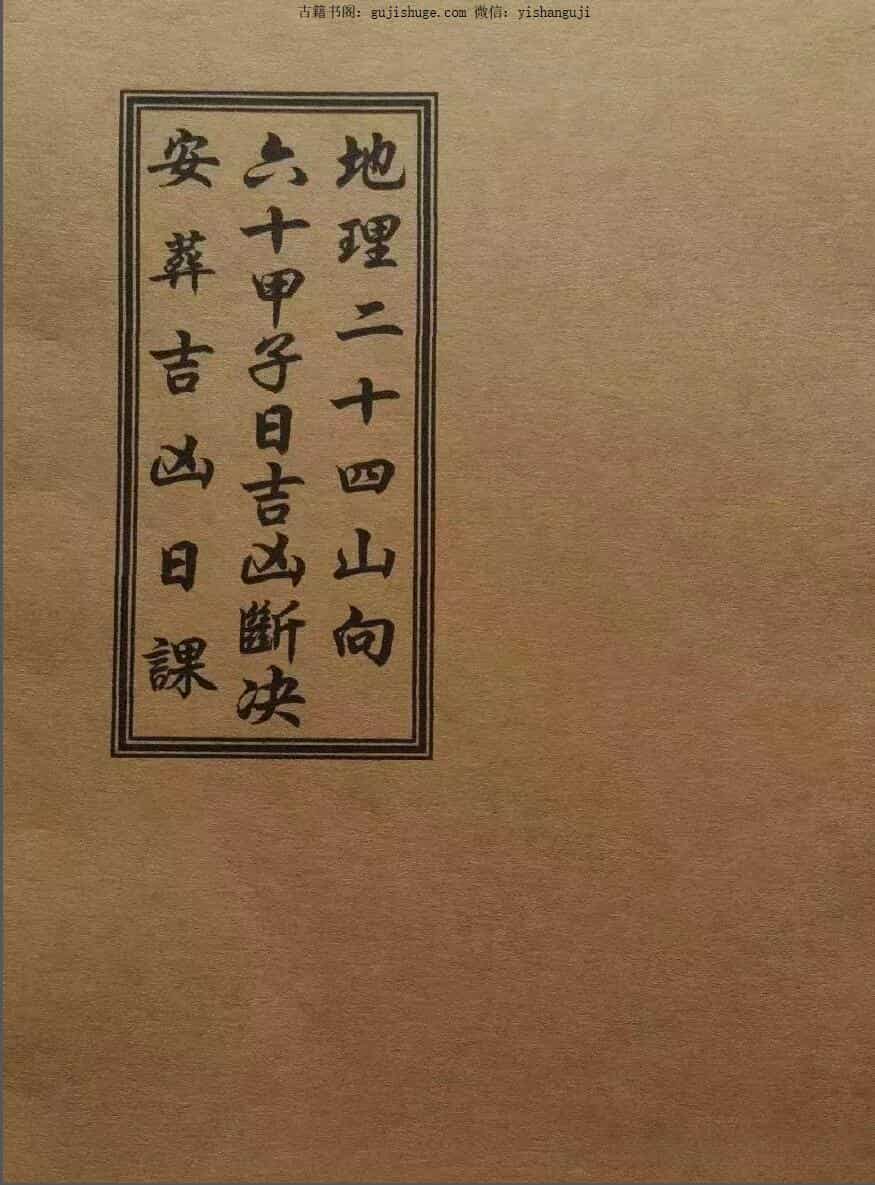 古籍书阁: gujishuge.com 微信: yishanguji
地理二十四山向
六十甲子日吉凶斷决
安葬吉凶日課